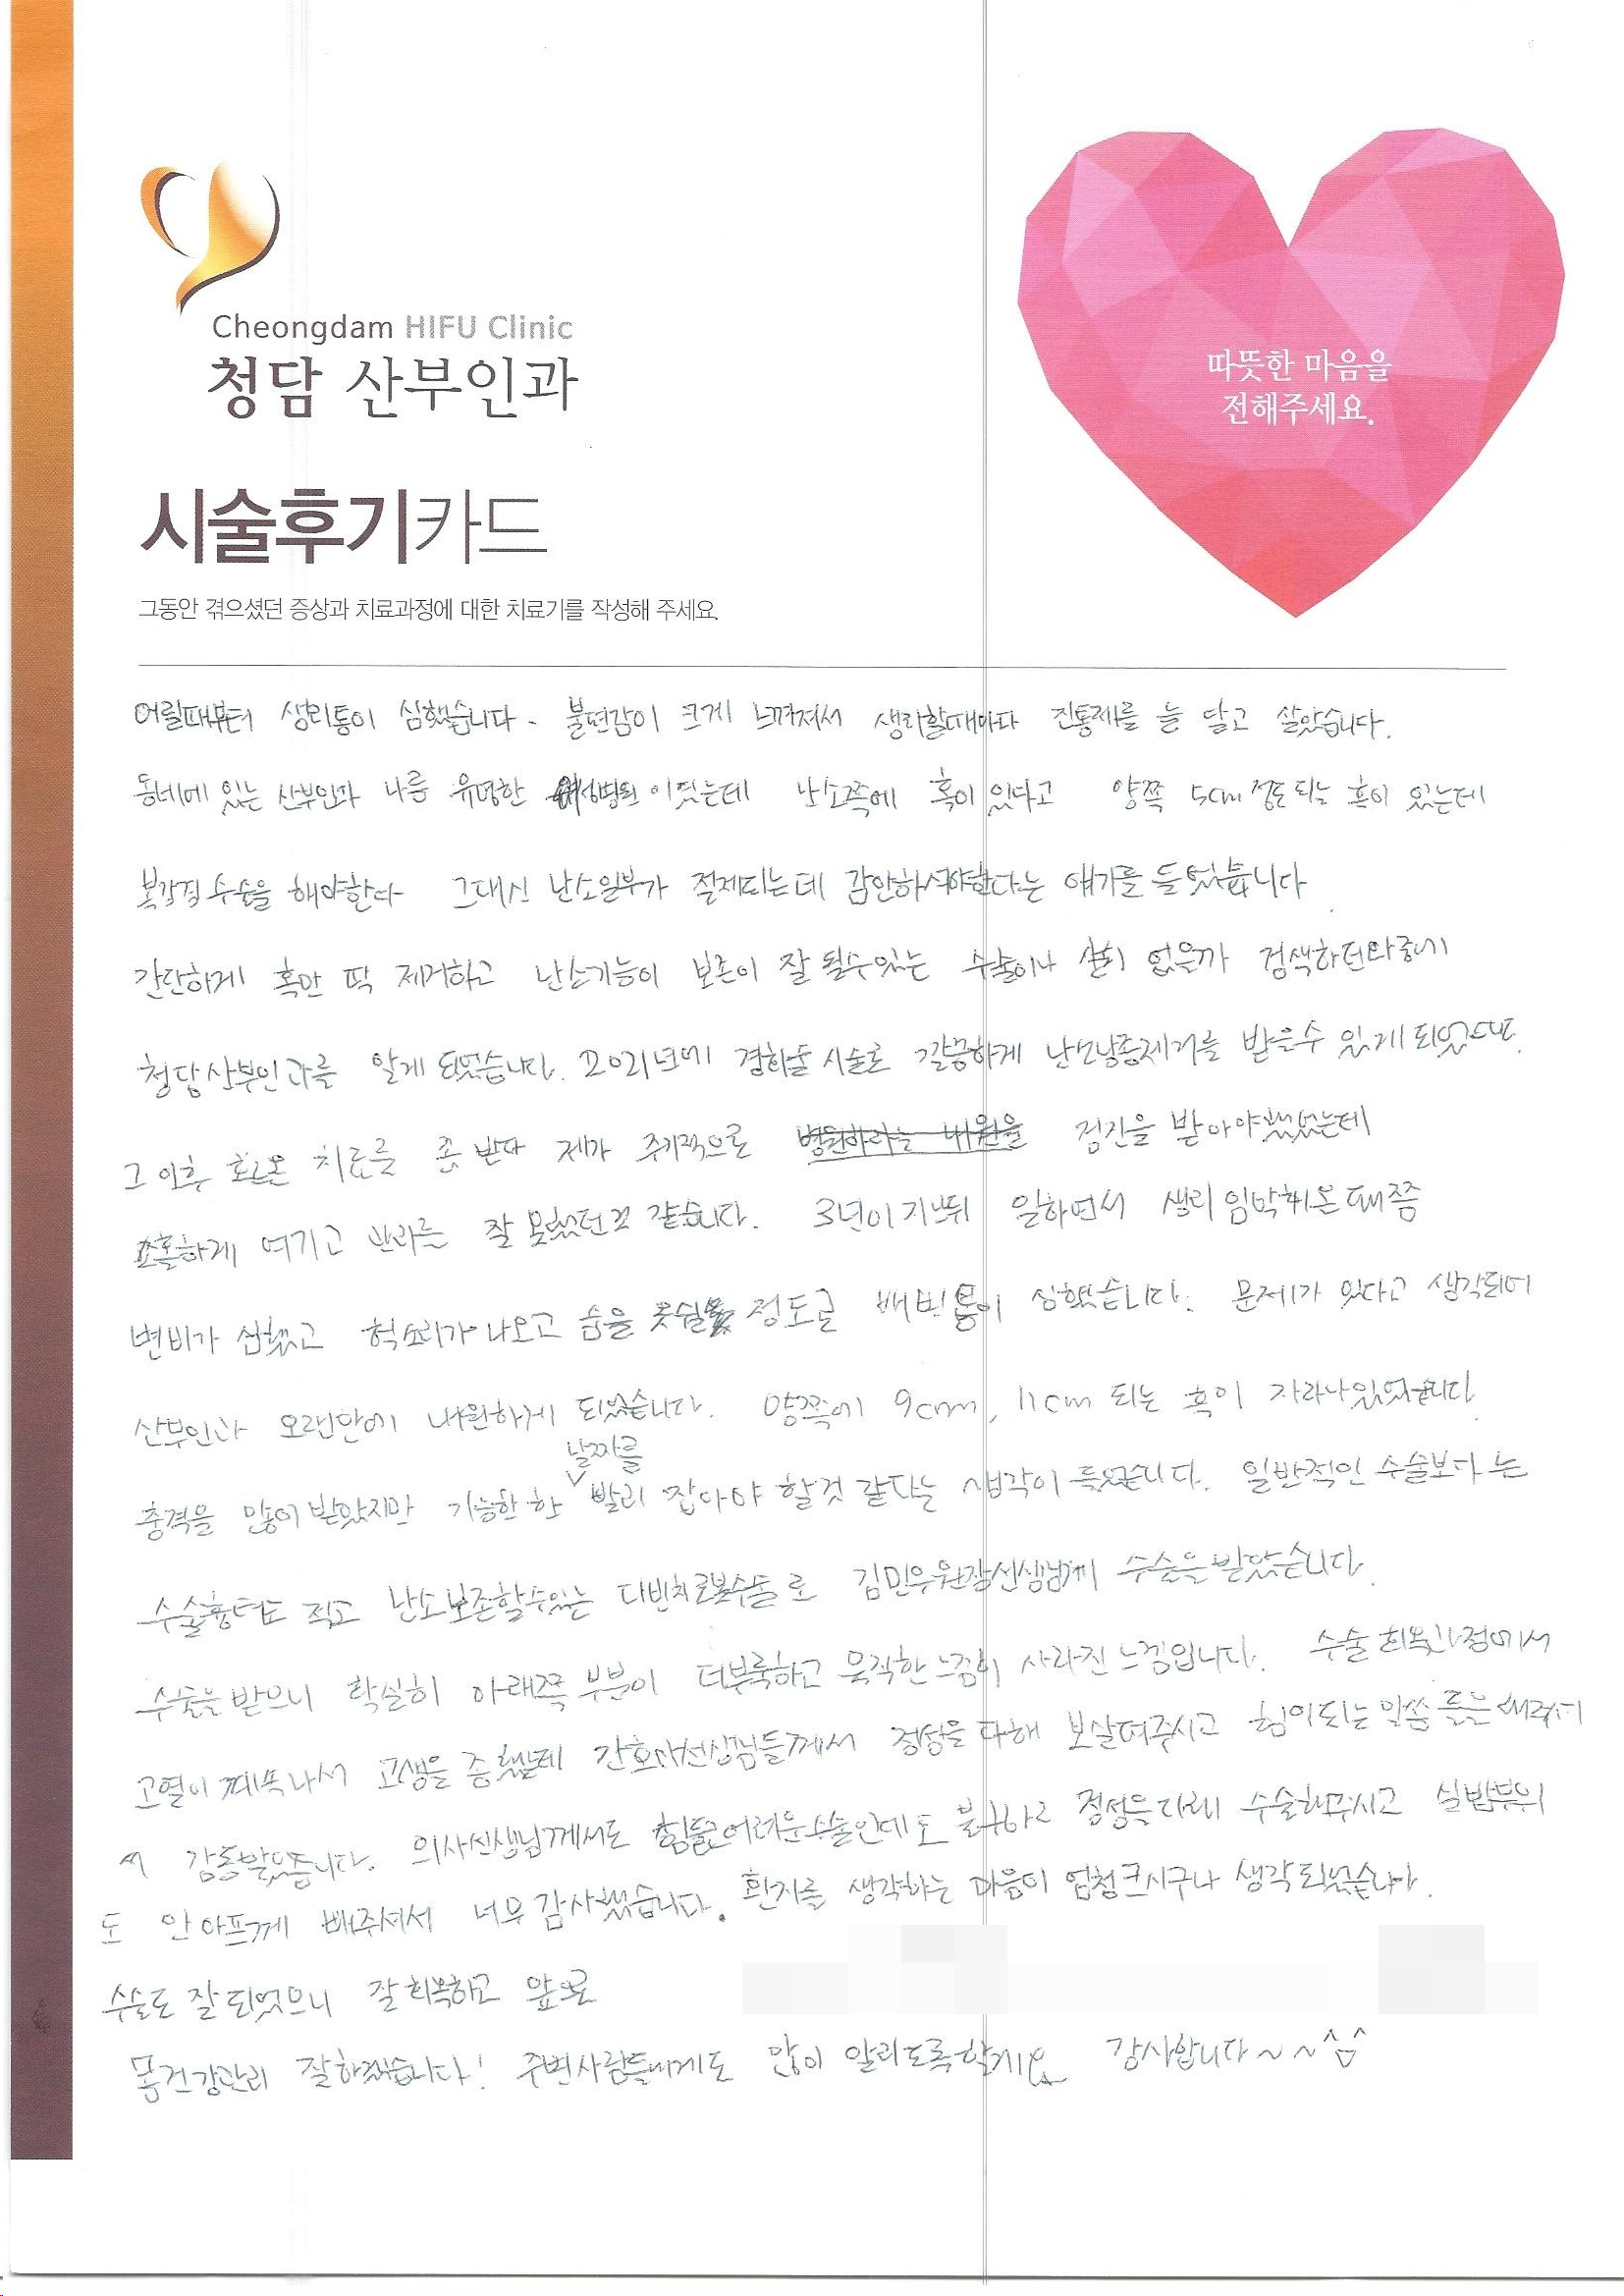 Cheongdam HIFU Clinic
청담 산부인과
따뜻한 마음을
전해주세요.
시술후기카드
그동안 겪으셨던 증상과 치료과정에 대한 치료기를 작성해 주세요.
어릴때부터 생리통이 심했습니다. 불편감이 크게 느껴져서 생리할때마다 진통제를 늘 달고 살았습니다.
동네에 있는 산부인과 나름 유명한 여성병원이었는데 난소쪽에 혹이 있다고 양쪽 5cm 정도 되는 혹이 있는데
복강경 수술을 해야한다 그대신 난소일부가 절제되는데 감안하셔야한다는 얘기를 들었습니다
간단하게 혹만 딱 제거하고 난소기능이 보존이 잘 될수있는 수술이나 없을까 검색하던와중에
청담산부인과를 알게 되었습니다. 2021년에 경화술 시술로 깔끔하게 난소낭종제거를 받을수 있게 되었으며
그 이후 호르몬 치료를 좀 받다 제가 주기적으로 검진을 받아야했었는데
소홀하게 여기고 관리를 잘 못했던것 같습니다. 3년이 지난뒤 일하면서 생리 임박해온 때쯤
변비가 심했고 헉소리가 나오고 숨을 못쉴 정도로 배변통이 심했습니다. 문제가 있다고 생각되어
산부인과 오랜만에 내원하게 되었습니다. 양쪽에 9cm, 11cm 되는 혹이 자라나있었습니다
충격을 많이 받았지만 가능한 한 날짜를 빨리 잡아야 할것 같다는 생각이 들었습니다. 일반적인 수술보다는
수술흉터도 적고 난소보존할수있는 다빈치로봇수술로 김민우원장선생님께 수술을 받았습니다.
수술을 받으니 확실히 아래쪽 부분이 더부룩하고 묵직한 느낌이 사라진 느낌입니다. 수술 회복과정에서
고열이 계속나서 고생을 좀 했는데 간호사선생님들께서 정성을 다해 보살펴주시고 힘이되는 말씀들을 해주셔
서 감동받았습니다. 의사선생님께서도 힘들고어려운수술인데도 불구하고 정성을다해 수술해주시고 실밥부위
도 안아프게 빼주셔서 너무 감사했습니다. 환자를 생각하는 마음이 엄청크시구나 생각되었습니다.
수술도 잘 되었으니 잘 회복하고 앞으로
몸건강관리 잘하겠습니다! 주변사람들에게도 많이 알리도록할게요 감사합니다~~^^